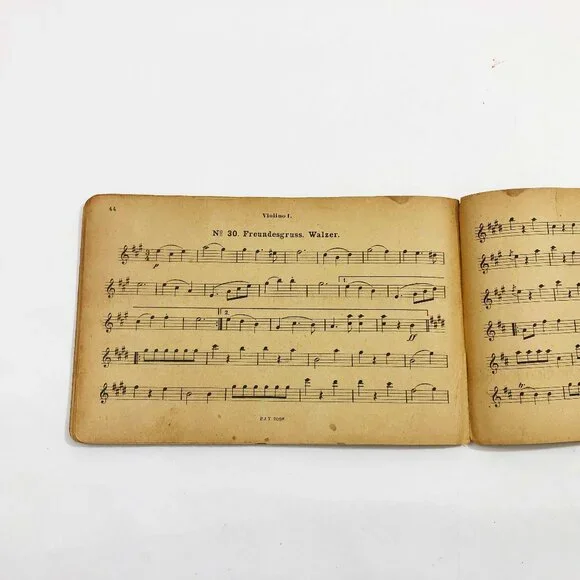 44
Violino I.
Nº 30. Freundesgruss. Walzer.
p
1.
2.
ff